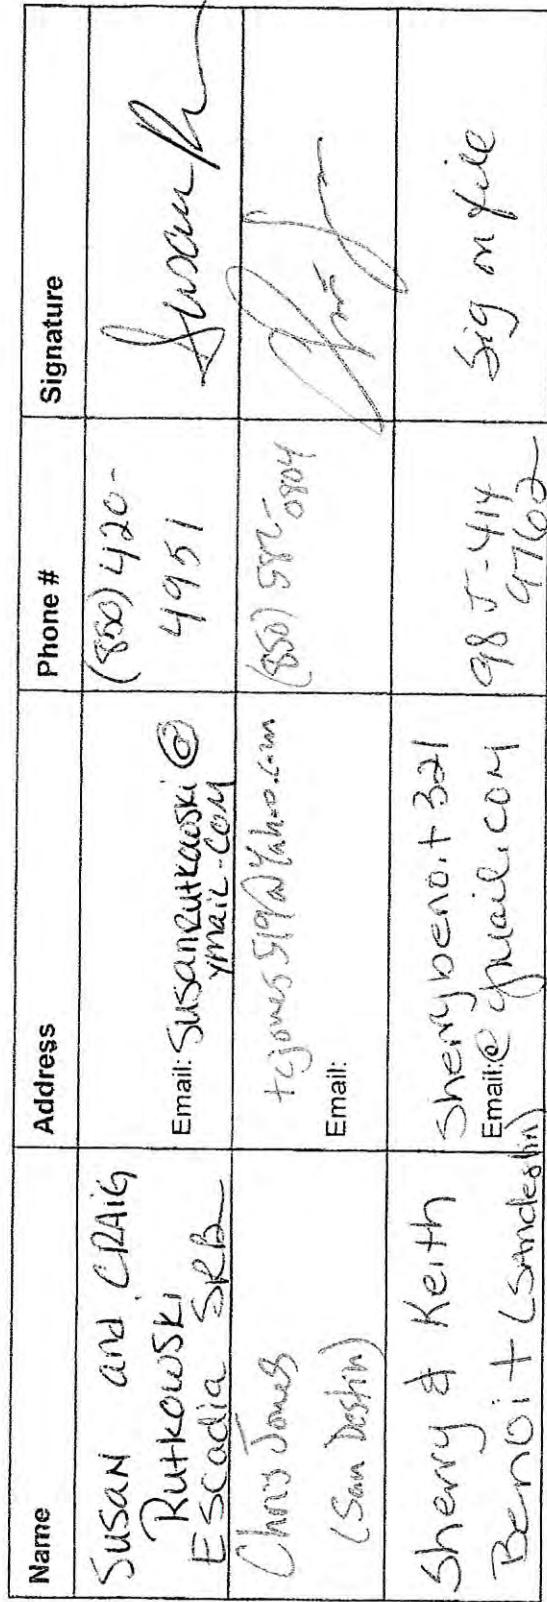 Name
Address
Phone #
Signature
Susan and CRAIG
Rutkowski
Escadia SRB
Email: Susanrutkowski@
ymail.com
(850) 420-
4951
Susan R
Chris Jones
(San Destin)
tcjones519@Yahoo.com
Email:
(850) 582-
0804
Chris J
Sherry & Keith
Benoit (Sandestin)
Sherrybenoit321
Email: @gmail.com
985-414
9762
Sig on file